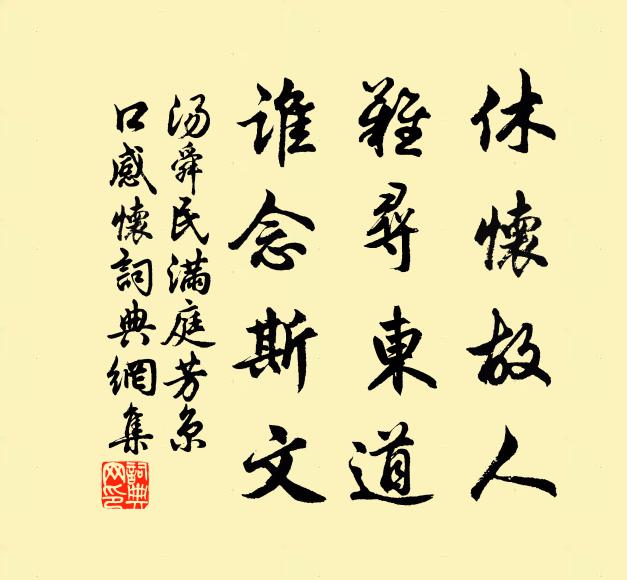 休懷故人
難尋東道
誰念斯文
汤舜民满庭芳京
口感懷詞典網集
詞典網印